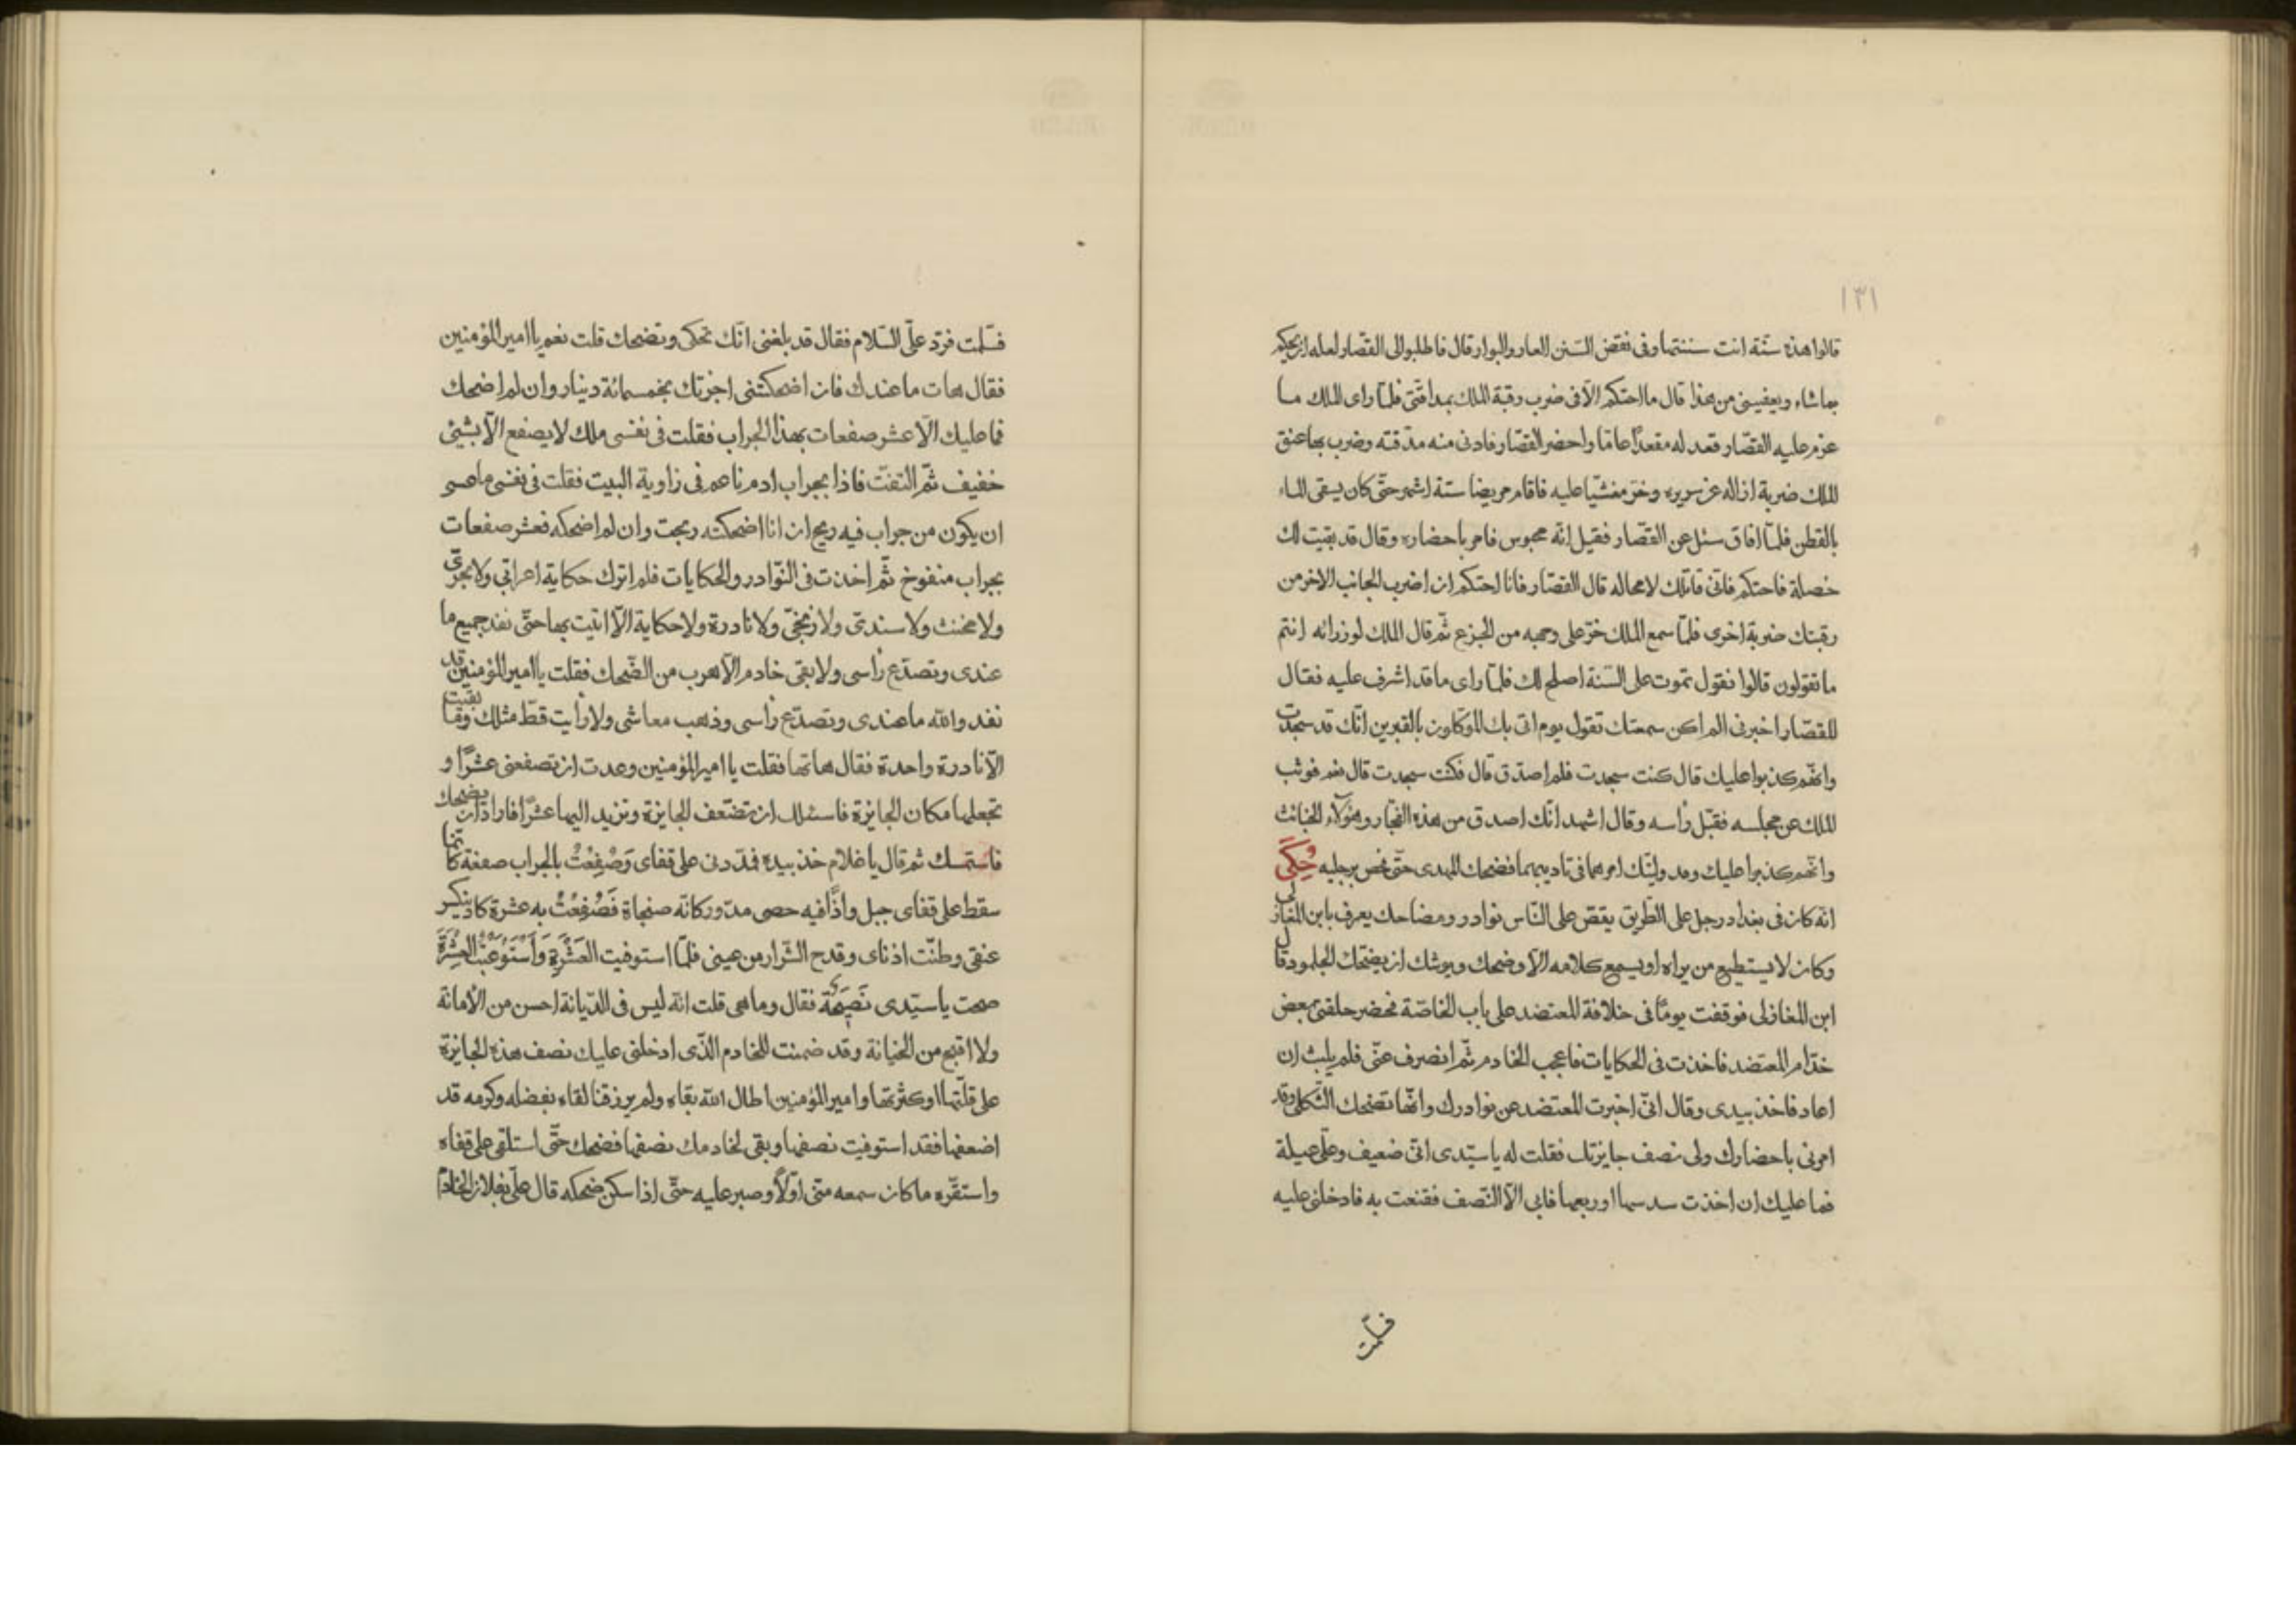 ١٣١
قالوا هذه سنّة انت سننتها وفى نقض السّنن العار والبوار قال فاطلبوا الى القصّار لعله ان يحكم
بماشاء ويعفينى من هذا قال ما احتكم الّا فى ضرب رقبة الملك بمدقّتى فلمّا راى الملك ما
عزم عليه القصّار قعد له مقعدًا عامّا واحضر القصّار فادنى منه مدقّته وضرب بها عنق
الملك ضربة ازاله عن سريره وخرّ مغشيّا عليه فاقام مريضا ستة اشهر حتّى كان يسقى الماء
بالقطن فلمّا افاق سئل عن القصّار فقيل انّه محبوس فامر باحضاره وقال قد بقيت لك
خصلة فاحتكم فانّى قاتلك لامحاله قال القصّار فانا احتكم ان اضرب الجانب الاخر من
رقبتك ضربة اخرى فلمّا سمع الملك خرّ على وجهه من الجزع ثّم قال الملك لوزرائه انتم
ماتقولون قالوا نقول تموت على السّنة اصلح لك فلمّا راى ماقد اشرف عليه فقال
للقصّار اخبرنى الم اكن سمعتك تقول يوم اتى بك الموكلون بالقبرين انّك قد سجدت
وانّهم كذبوا عليك قال كنت سجدت فلم اصدّق قال فكنت سجدت قال نعم فوثب
الملك عن مجلسه فقبّل رأسه وقال اشهد انّك اصدق من هذه الفجّار وهؤلاء الخبائث
وانّهم كذبوا عليك وقد وليّتك امرهما فى تاديبهما فضحك المهدى حتّى فحص برجليه حُكِىَ
انّه كان فى بغداد رجل على الطّريق يقصّ على النّاس نوادر ومضاحك يعرف بابن المغازلى
وكان لايستطيع من يراه او يسمع كلامه الّا وضحك ويوشك ان يضحك الجلمود قال
ابن المغازلى فوقفت يومًا فى خلافة المعتضد على باب الخاصّة فحضر حلقتى بعض
خدّام المعتضد فاخذت فى الحكايات فاعجب الخادم ثّم انصرف عنّى فلم يلبث ان
اعاد فاخذ بيدى وقال انّى اخبرت المعتضد عن نوادرك وانّها تضحك الثّكلى وقد
امرنى باحضارك ولى نصف جايزتك فقلت له ياسيّدى انّى ضعيف وعلّى عيلة
فما عليك ان اخذت سدسها او ربعها فابى الّا النّصف فقنعت به فادخلنى عليه
فسلّمت
فسلّمت فردّ علّى السّلام فقال قد بلغنى انّك تحكى وتضحك قلت نعم يا امير المؤمنين
فقال هات ماعندك فان اضحكتنى اجزتك بخمسمائة دينار وان لم اضحك
فما عليك الّا عشر صفعات بهذا الجراب فقلت فى نفسى ملك لايصفع الّا بشيئ
خفيف ثّم التفتّ فاذا بجراب ادم ناعم فى زاوية البيت فقلت فى نفسى ماعسى
ان يكون من جراب فيه ريح ان انا اضحكته ربحت وان لم اضحكه فعشر صفعات
بجراب منفوخ ثّم اخذت فى النّوادر والحكايات فلم اترك حكاية اعرابّى ولا
ولا مخنث ولا سندىّ ولا زنجّى ولا نادرة ولاحكاية الّا اتيت بها حتّى نفد جميع ما
عندى وتصدّع رأسى ولا بقى خادم الّا هرب من الضّحك فقلت يا امير المؤمنين قد
نفد والله ماعندى وتصدّع رأسى وذهب معاشى ولا رأيت قطّ مثلك وما بقيت
الّا نادرة واحدة فقال هاتها فقلت يا امير المؤمنين وعدت ان تصفعنى عشرًا و
تجعلها مكان الجايزة فاسئلك ان تضعّف الجايزة وتزيد اليها عشرًا فاراد ان يضحك
فاستمسك ثم قال ياغلام خذ بيده فمدّدنى على قفاى وَصُفِعْتُ بالجراب صفعة كانّما
سقط على قفاى جبل واذًا فيه حصى مدوّر كانّه صنجاة فَصُفِعْتُ به عشرة كاد ينكسر
عنقى وطنّت اذناى وقدح الشّرار من عينى فلمّا استوفيت العَشَرة وَاستَوعَبْتُ العَشَرَة
صحت ياسيّدى نَصِيحَة فقال وماهى قلت انّه ليس فى الدّيانة احسن من الأمانة
ولا اقبح من الخيانة وقد ضمنت للخادم الّذى ادخلنى عليك نصف هذه الجايزة
على قلّتها او كثرتها وامير المؤمنين اطال الله بقاه ولم يرزقنا لقاء بفضله وكرمه قد
اضعفها فقد استوفيت نصفها وبقى لخادمك نصفها فضحك حتّى استلقى على قفاه
واستقرّه ماكان سمعه منّى اوّلًا وصبر عليه حتّى اذا سكن ضحكه قال علّى بفلان الخادم